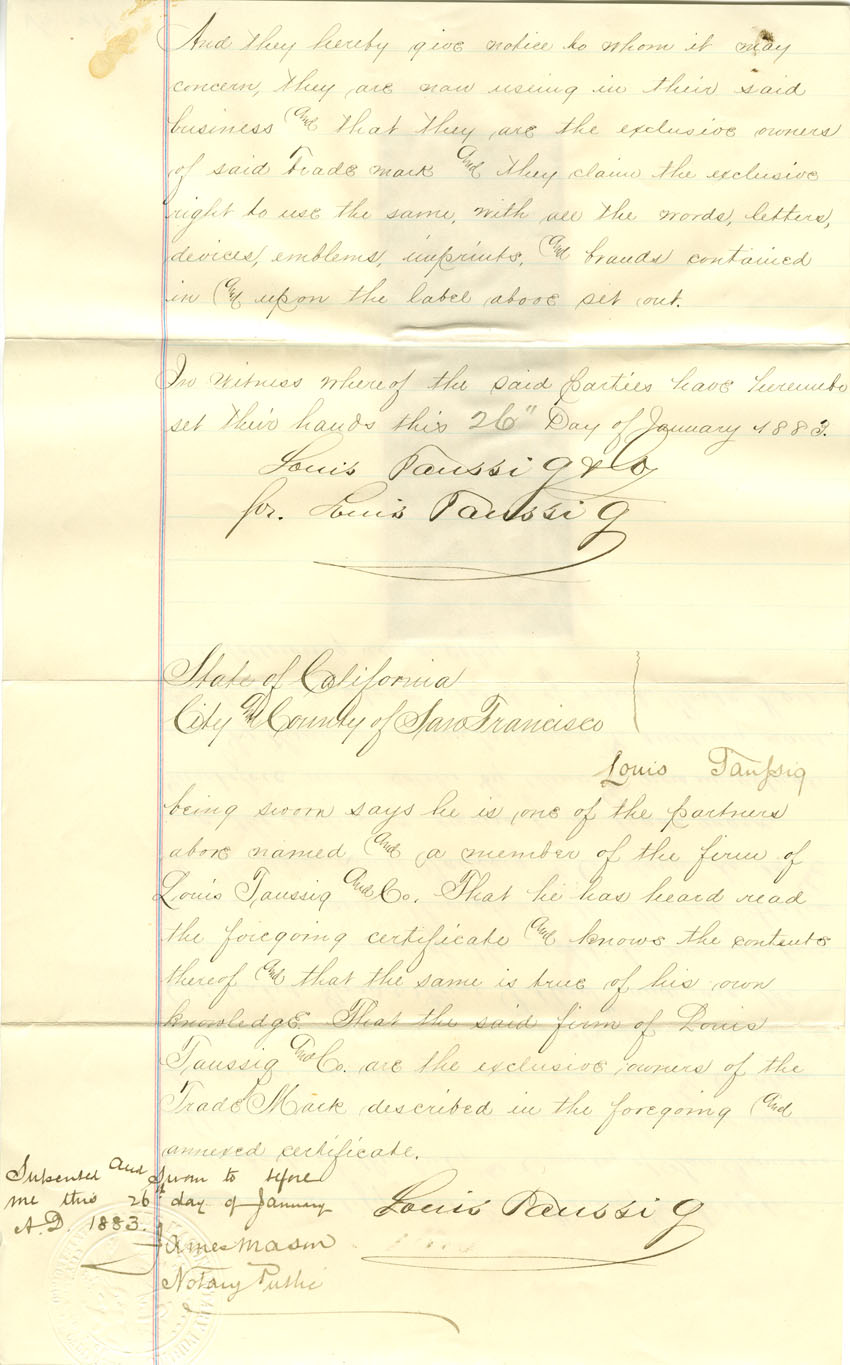 And they hereby give notice to whom it may
concern, they are now useing in their said
business And that they are the exclusive owners
of said Trade mark And they claim the exclusive
right to use the same, with all the words, letters,
devices, emblems, imprints, And brands contained
in And upon the label above set out.
In Witness whereof the said parties have hereunto
set their hands this 26" Day of January 1883.
Louis Taussig & Co
for. Louis Taussig
State of California
City And County of San Francisco
Louis Taussig
being sworn says he is one of the partners
above named And a member of the firm of
Louis Taussig And Co. That he has heard read
the foregoing certificate And knows the contents
thereof And that the same is true of his own
knowledge. That the said firm of Louis
Taussig And Co. are the exclusive owners of the
Trade Mark described in the foregoing And
annexed certificate.
Louis Taussig
Subscribed And Sworn to before
me this 26th day of January
A.D. 1883.
James Mason
Notary Public